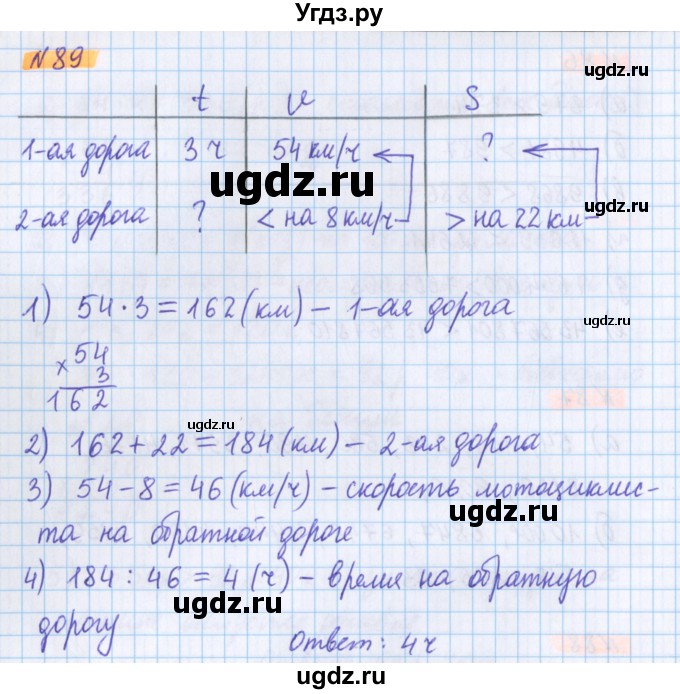 Угдз.ру
N89
ugdz.ru
t v S
1-ая дорога 3 ч 54 км/ч ?
ugdz.ru
ugdz.ru
2-ая дорога ? < на 8 км/ч > на 22 км
1) 54 · 3 = 162 (км) – 1-ая дорога
ugdz.ru
× 54
3
ugdz.ru
162
ugdz.ru
2) 162 + 22 = 184 (км) – 2-ая дорога
3) 54 – 8 = 46 (км/ч) – скорость мотоциклис-
ugdz.ru
та на обратной дороге
ugdz.ru
4) 184 : 46 = 4 (ч) – время на обратную
ugdz.ru
дорогу
Ответ: 4 ч
ugdz.ru